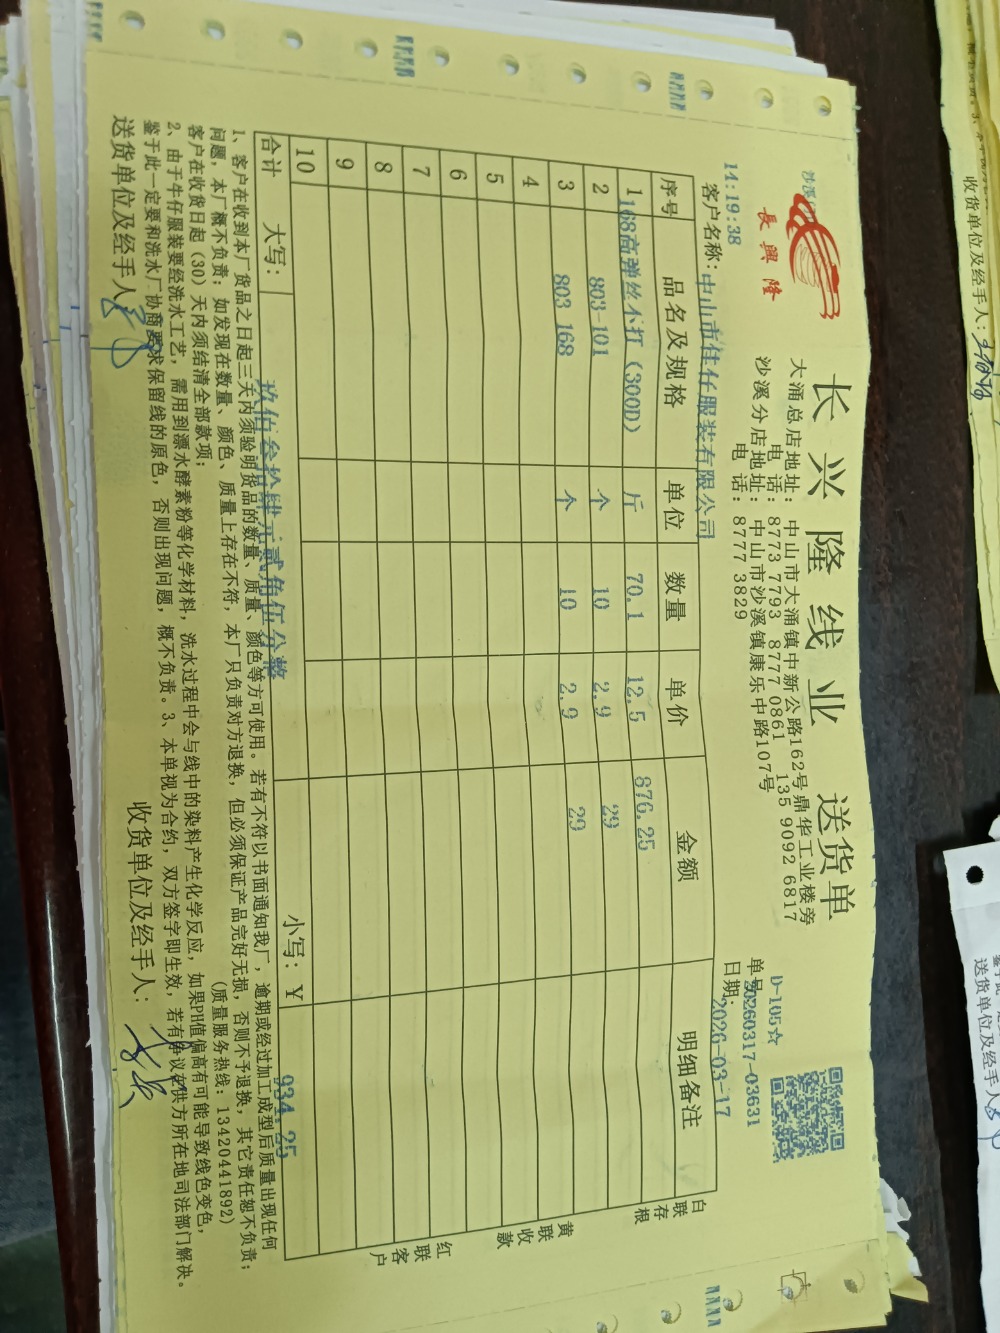 沙溪
長興隆
长兴隆线业 送货单
大涌总店地址：中山市大涌镇中新公路162号鼎华工业楼旁
电话：8773 7793 8777 0861 135 9092 6817
沙溪分店地址：中山市沙溪镇康乐中路107号
电话：8777 3829
D-105☆
单号:20260317-03631
14:19:38
日期:2026-03-17
客户名称:中山市佳仔服装有限公司
序号 品名及规格 单位 数量 单价 金额 明细备注
1 168高弹丝不打（300D） 斤 70.1 12.5 876.25
2 803-101 个 10 2.9 29
3 803 168 个 10 2.9 29
4
5
6
7
8
9
10
合计 大写：玖佰叁拾肆元贰角伍分整 小写：Y 934.25
白联存根
黄联收款
红联客户
1、客户在收到本厂货品之日起三天内须验明货品的数量、质量、颜色等方可使用。若有不符以书面通知我厂，逾期或经过加工成型后质量出现任何
问题，本厂概不负责；如发现在数量、颜色、质量上存在不符，本厂只负责对方退换，但必须保证产品完好无损，否则不予退换，其它责任恕不负责；
客户在收货日起（30）天内须结清全部款项； （质量服务热线：13420441892）
2、由于牛仔服装要经洗水工艺，需用到漂水酵素粉等化学材料，洗水过程中会与线中的染料产生化学反应，如果PH值偏高有可能导致线色变色，
鉴于此一定要和洗水厂协商要求保留线的原色，否则出现问题，概不负责。3、本单视为合约，双方签字即生效，若有争议在供方所在地司法部门解决。
送货单位及经手人：
收货单位及经手人：
收货单位及经手人:
送货单位及经手人